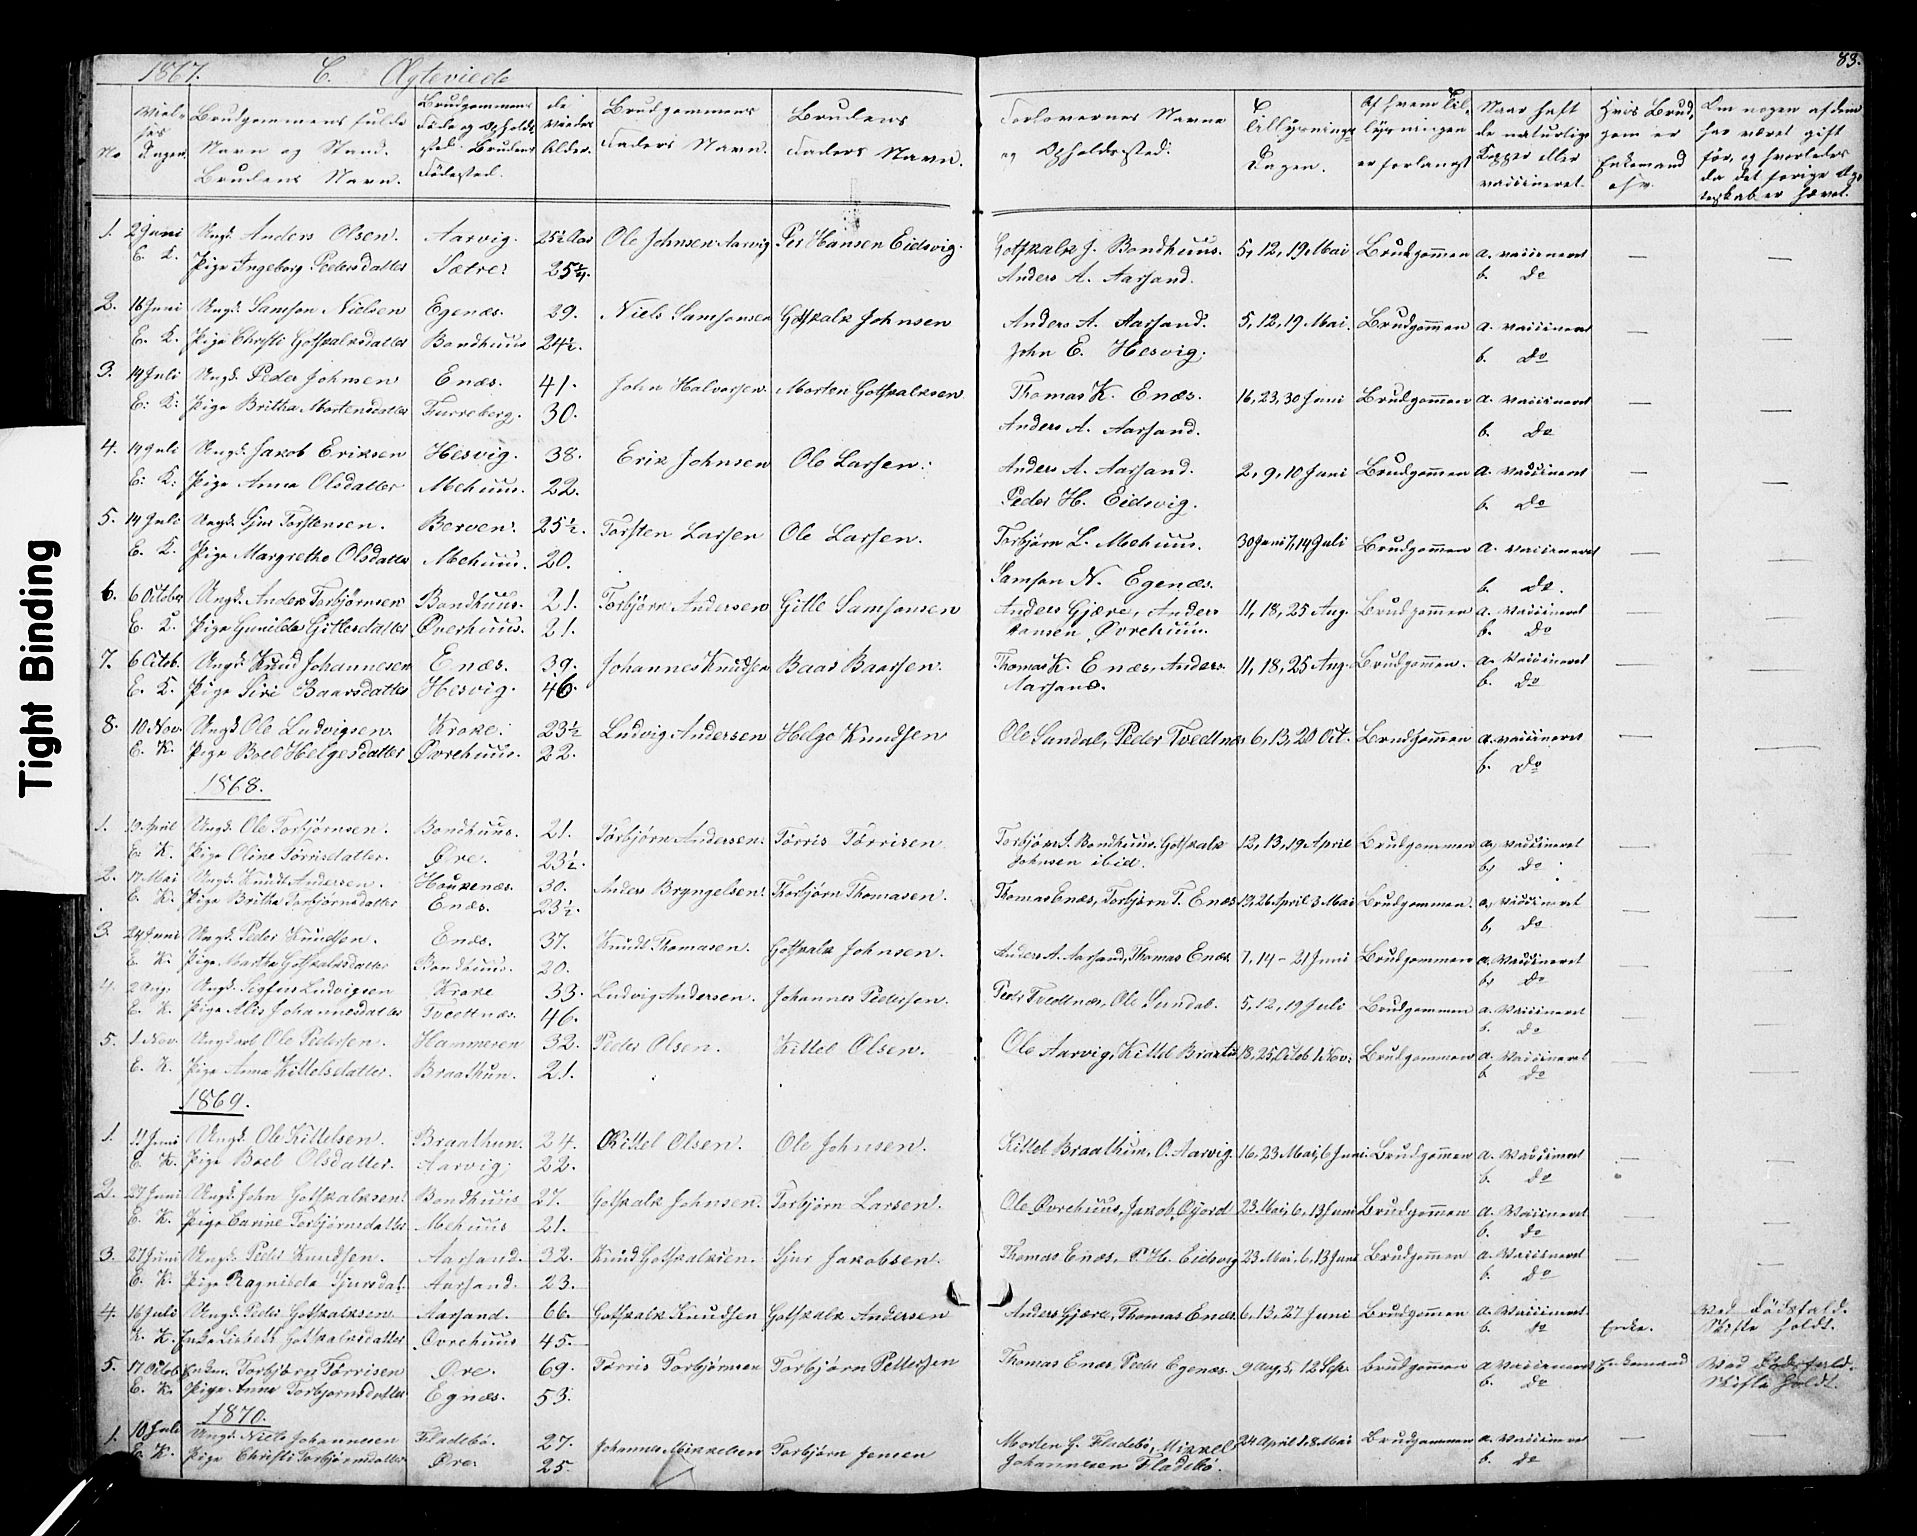 Tight Binding
1867. C. Ægteviede
83.
No
Vielsens Dagen.
Brudgommens fulde Navn og Stand. Brudens Navn.
Brudgommens Føde og Opholdssted. Brudens Fødested.
de Viedes Alder.
Brudgommens Faders Navn.
Brudens Faders Navn.
Forlovernes Navne og Opholdssted.
Tillysnings Dagen.
Af hvem Tillysningen er forlangt
Naar haft de naturlige Kopper eller vaccineret.
Hvis Brudgom er Enkemand
Om nogen af dem har været gift før, og hvorledes da det forige Ægteskab er hævet.
1. 2 Juni Ungk. Anders Olsen. Aarvig. 25½ Aar Ole Johnsen Aarvig Per Hansen Eidsvig. Gotskalk J. Bondhuus. 5, 12, 19 Mai Brudgommen a. vaccineret — —
E. K. Pige Ingeborg Pedersdatter Sætre. 25¼. Anders A. Aarsand. b. do
2. 16 Juni Ungk. Samson Nielsen Egenæs. 29. Niels Samsonsen Gotskalk Johnsen Anders A. Aarsand. 5, 12, 19 Mai. Brudgommen a. vaccineret — —
E. K. Pige Christi Gotskalksdatter Bondhuus 24½. John E. Hesvig. b. do
3. 14 Juli Ungk. Peder Johnsen Enæs. 41. John Halvorsen Morten Gotskalksen Thomas K. Enæs. 16, 23, 30 Juni Brudgommen a. vaccineret — —
E. K. Pige Britha Mortensdatter Furreberg. 30. Anders A. Aarsand. b. do
4. 14 Juli Ungk. Jakob Eriksen Hesvig. 38. Erik Johnsen Ole Larsen. Anders A. Aarsand. 2, 9, 10 Juni Brudgommen a. vaccineret — —
E. K. Pige Anna Olsdatter Mehuus. 22. Peder H. Eidsvig. b. do
5. 14 Juli Ungk. Sjur Torstensen. Berven. 25½. Torsten Larsen Ole Larsen. Torbjørn L. Mehuus. 30 Juni 7, 14 Juli Brudgommen a. vaccineret — —
E. K. Pige Margrethe Olsdatter Mehuus. 20. Samson N. Egenæs. b. do.
6. 6 October Ungk. Anders Torbjørnsen Bondhuus. 21. Torbjørn Andersen Gitle Samsonsen Anders Gjære, Anders 11, 18, 25 Aug. Brudgommen a. vaccineret — —
E. K. Pige Gunilda Gitlesdatter Øvrehuus. 21. Hansen Øvrehuus. b. do
7. 6 Octob. Ungk. Knud Johannesen Enæs. 39. Johannes Knudsen Baar Baarsen. Thomas K. Enæs, Anders 11, 18, 25 Aug. Brudgommen. a. vaccineret — —
E. K. Pige Siri Baarsdatter Hesvig. 46. Aarsand. b. do
8. 10 Nov. Ungk Ole Ludvigsen. Kroke. 23½ Ludvig Andersen Helge Knudsen Ole Sundal, Peder Tvedtnæs 6, 13, 20 Oct. Brudgommen a. vaccineret — —
E. K. Pige Boel Helgesdatter Øvrehuus. 22. b. do
1868.
1. 13 April Ungk. Ole Torbjørnsen. Bondhuus. 21. Torbjørn Andersen. Tørris Tørrisen Torbjørn J. Bondhuus. Gotskalk 12, 13, 19 April Brudgommen a, vaccineret — —
E. K. Pige Oline Tørrisdatter. Øre. 23½. Johnsen ibid. b, do
2. 17 Mai Ungk. Knudt Andersen. Haukenæs. 30. Anders Bryngelsen. Thorbjørn Thomasen. Thomas Enæs, Torbjørn T. Enæs 19, 26 April 3 Mai Brudgommen. a, vaccineret — —
E. K. Pige Britha Torbjørnsdatter Enæs. 23½. b, do
3. 24 Juni Ungk. Peder Knudsen. Enæs. 37. Knudt Thomasen. Gotskalk Johnsen. Anders A. Aarsand, Thomas Enæs. 7, 14 - 21 Juni Brudgommen a. vaccineret — —
E. K. Pige Martha Gotskalksdatter Bondhuus. 20. b, do
4. 2 Aug. Ungk. Sigfus Ludvigsen Kroke 33. Ludvig Andersen. Johannes Pedersen. Peder Tvedtnæs, Ole Sundal. 5, 12, 19 Juli Brudgommen a. vaccineret — —
E. K. Pige Alis Johannesdatter Tvedtnæs. 46. b. do
5. 1 Nov. Ungkarl Ole Pedersen. Hammeren 32. Peder Olsen. Kittel Olsen. Ole Aarvig, Kittel Braatun 18, 25 Octob 1 Nov. Brudgommen a. vaccineret — —
E. K. Pige Anna Kittelsdatter. Braathun. 21. b. do
1869.
1. 11 Juni Ungk. Ole Kittelsen. Braathun. 24. Kittel Olsen. Ole Johnsen. Kittel Braathun, O. Aarvig. 16, 23 Mai, 6 Juni. Brudgommen a. vaccineret — —
E. K. Pige Boel Olsdatter. Aarvig. 22. b. do
2. 27 Juni Ungk. John Gotskalksen. Bondhuus 27. Gotskalk Johnsen. Torbjørn Larsen. Ole Øvrehuus, Jakob Øyord 23 Mai, 6, 13 Juni Brudgommen a. vaccineret — —
E. K. Pige Carine Torbjørnsdatter Mehuus 21. b. do
3. 27 Juni Ungk. Peder Knudsen. Aarsand. 32. Knud Gotskalksen. Sjur Jakobsen. Thomas Enæs, P. H. Eidsvig 23 Mai, 6, 13 Juni Brudgommen a. vaccineret — —
E. K. Pige Ragnilda Sjursdat. Aarsand. 23. b. do
4. 16 Juli Ungk. Peder Gotskalksen Aarsand. 66. Gotskalk Knudsen Gotskalk Andersen Anders Gjære, Thomas Enæs. 6, 13, 27 Juni Brudgommen a. vaccineret Ved Dødsfald.
K. K. Enke Lisbeth Gotskalksdatter Øvrehuus 45. b. do Enke. Skifte holdt.
5. 17 Octob. Enkm. Torbjørn Tørrisen Øre. 69. Tørris Torbjørnsen Torbjørn Pettersen Thomas Enæs, Peder Egenæs. 9 Aug, 5, 12 Sep. Brudgommen a. vaccineret Enkemand Ved Dødsfald.
E. K. Pige Anna Torbjørnsdatter Egnæs. 53. b. do Skifte holdt.
1870.
1. 10 Juli Ungk. Niels Johannesen Fladebø. 27. Johannes Mikkelsen Torbjørn Jensen Morten G. Fladebø, Mikkel 24 April 1, 8 Mai Brudgommen a. vaccineret — —
E. K. Pige Christi Torbjørnsdatter Øre. 25. Johannesen Fladebø. b. do